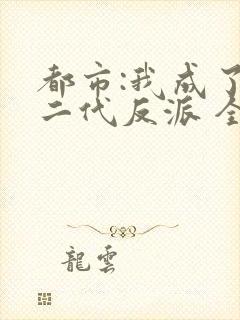 都市:我成了
二代反派 全
龍雲